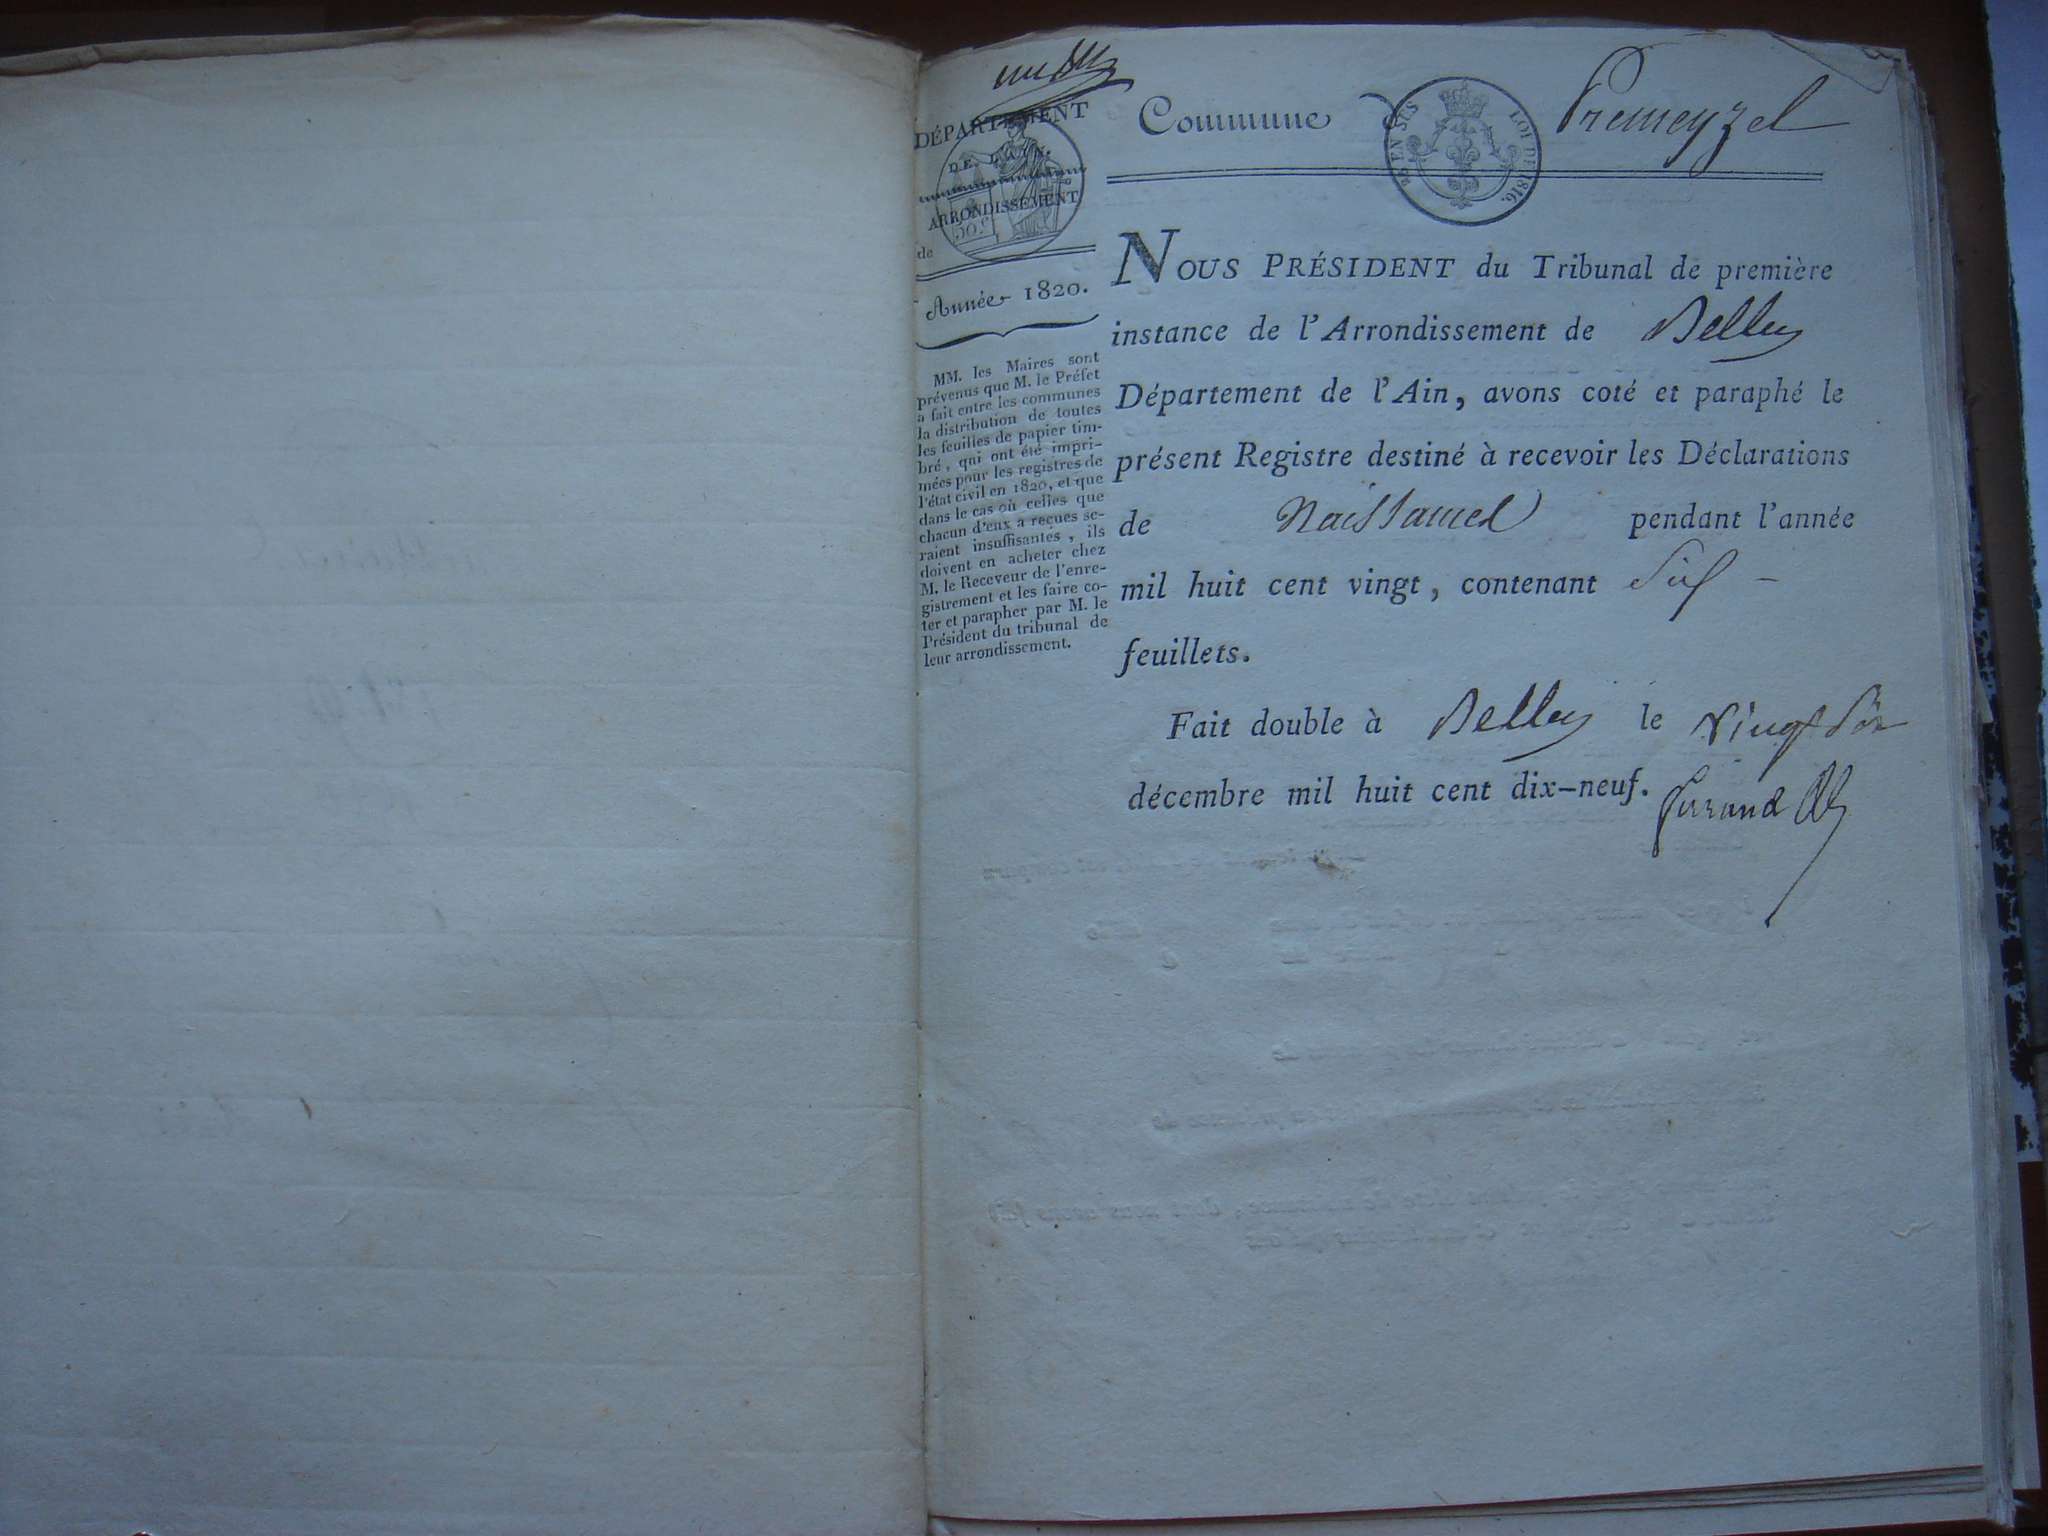 DÉPARTEMENT
DE L'AIN.
ARRONDISSEMENT
de
Année 1820.
MM. les Maires sont
prévenus que M. le Préfet
a fait entre les communes
la distribution de toutes
les feuilles de papier tim-
bré, qui ont été impri-
mées pour les registres de
l'état civil en 1820, et que
dans le cas où celles que
chacun d'eux a reçues se-
raient insuffisantes, ils
doivent en acheter chez
M. le Receveur de l'enre-
gistrement et les faire co-
ter et parapher par M. le
Président du tribunal de
leur arrondissement.
Commune d Premeyzel
EN SUS LOI DE 1816.
NOUS PRÉSIDENT du Tribunal de première
instance de l'Arrondissement de Belley
Département de l'Ain, avons coté et paraphé le
présent Registre destiné à recevoir les Déclarations
de Naissances pendant l'année
mil huit cent vingt, contenant Six
feuillets.
Fait double à Belley le Vingt
décembre mil huit cent dix-neuf.